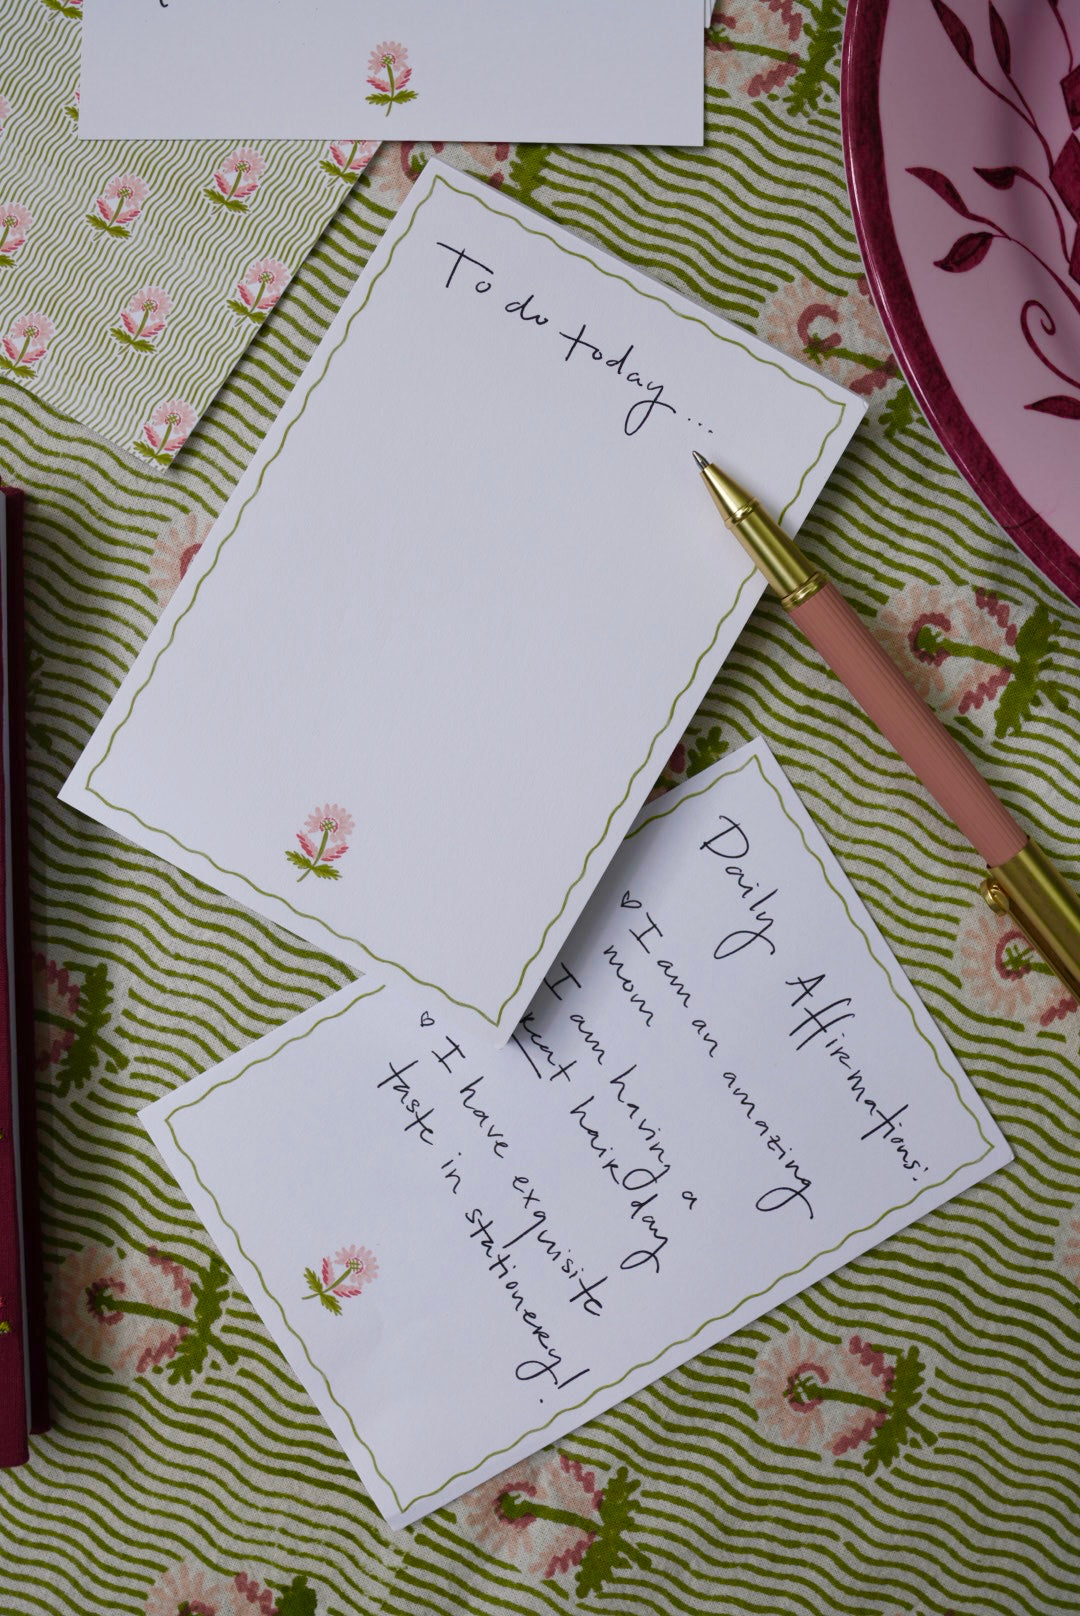 To do today...
Daily Affirmations:
♡ I am an amazing
mom
I am having a
hair day
♡ I have exquisite
taste in stationery!